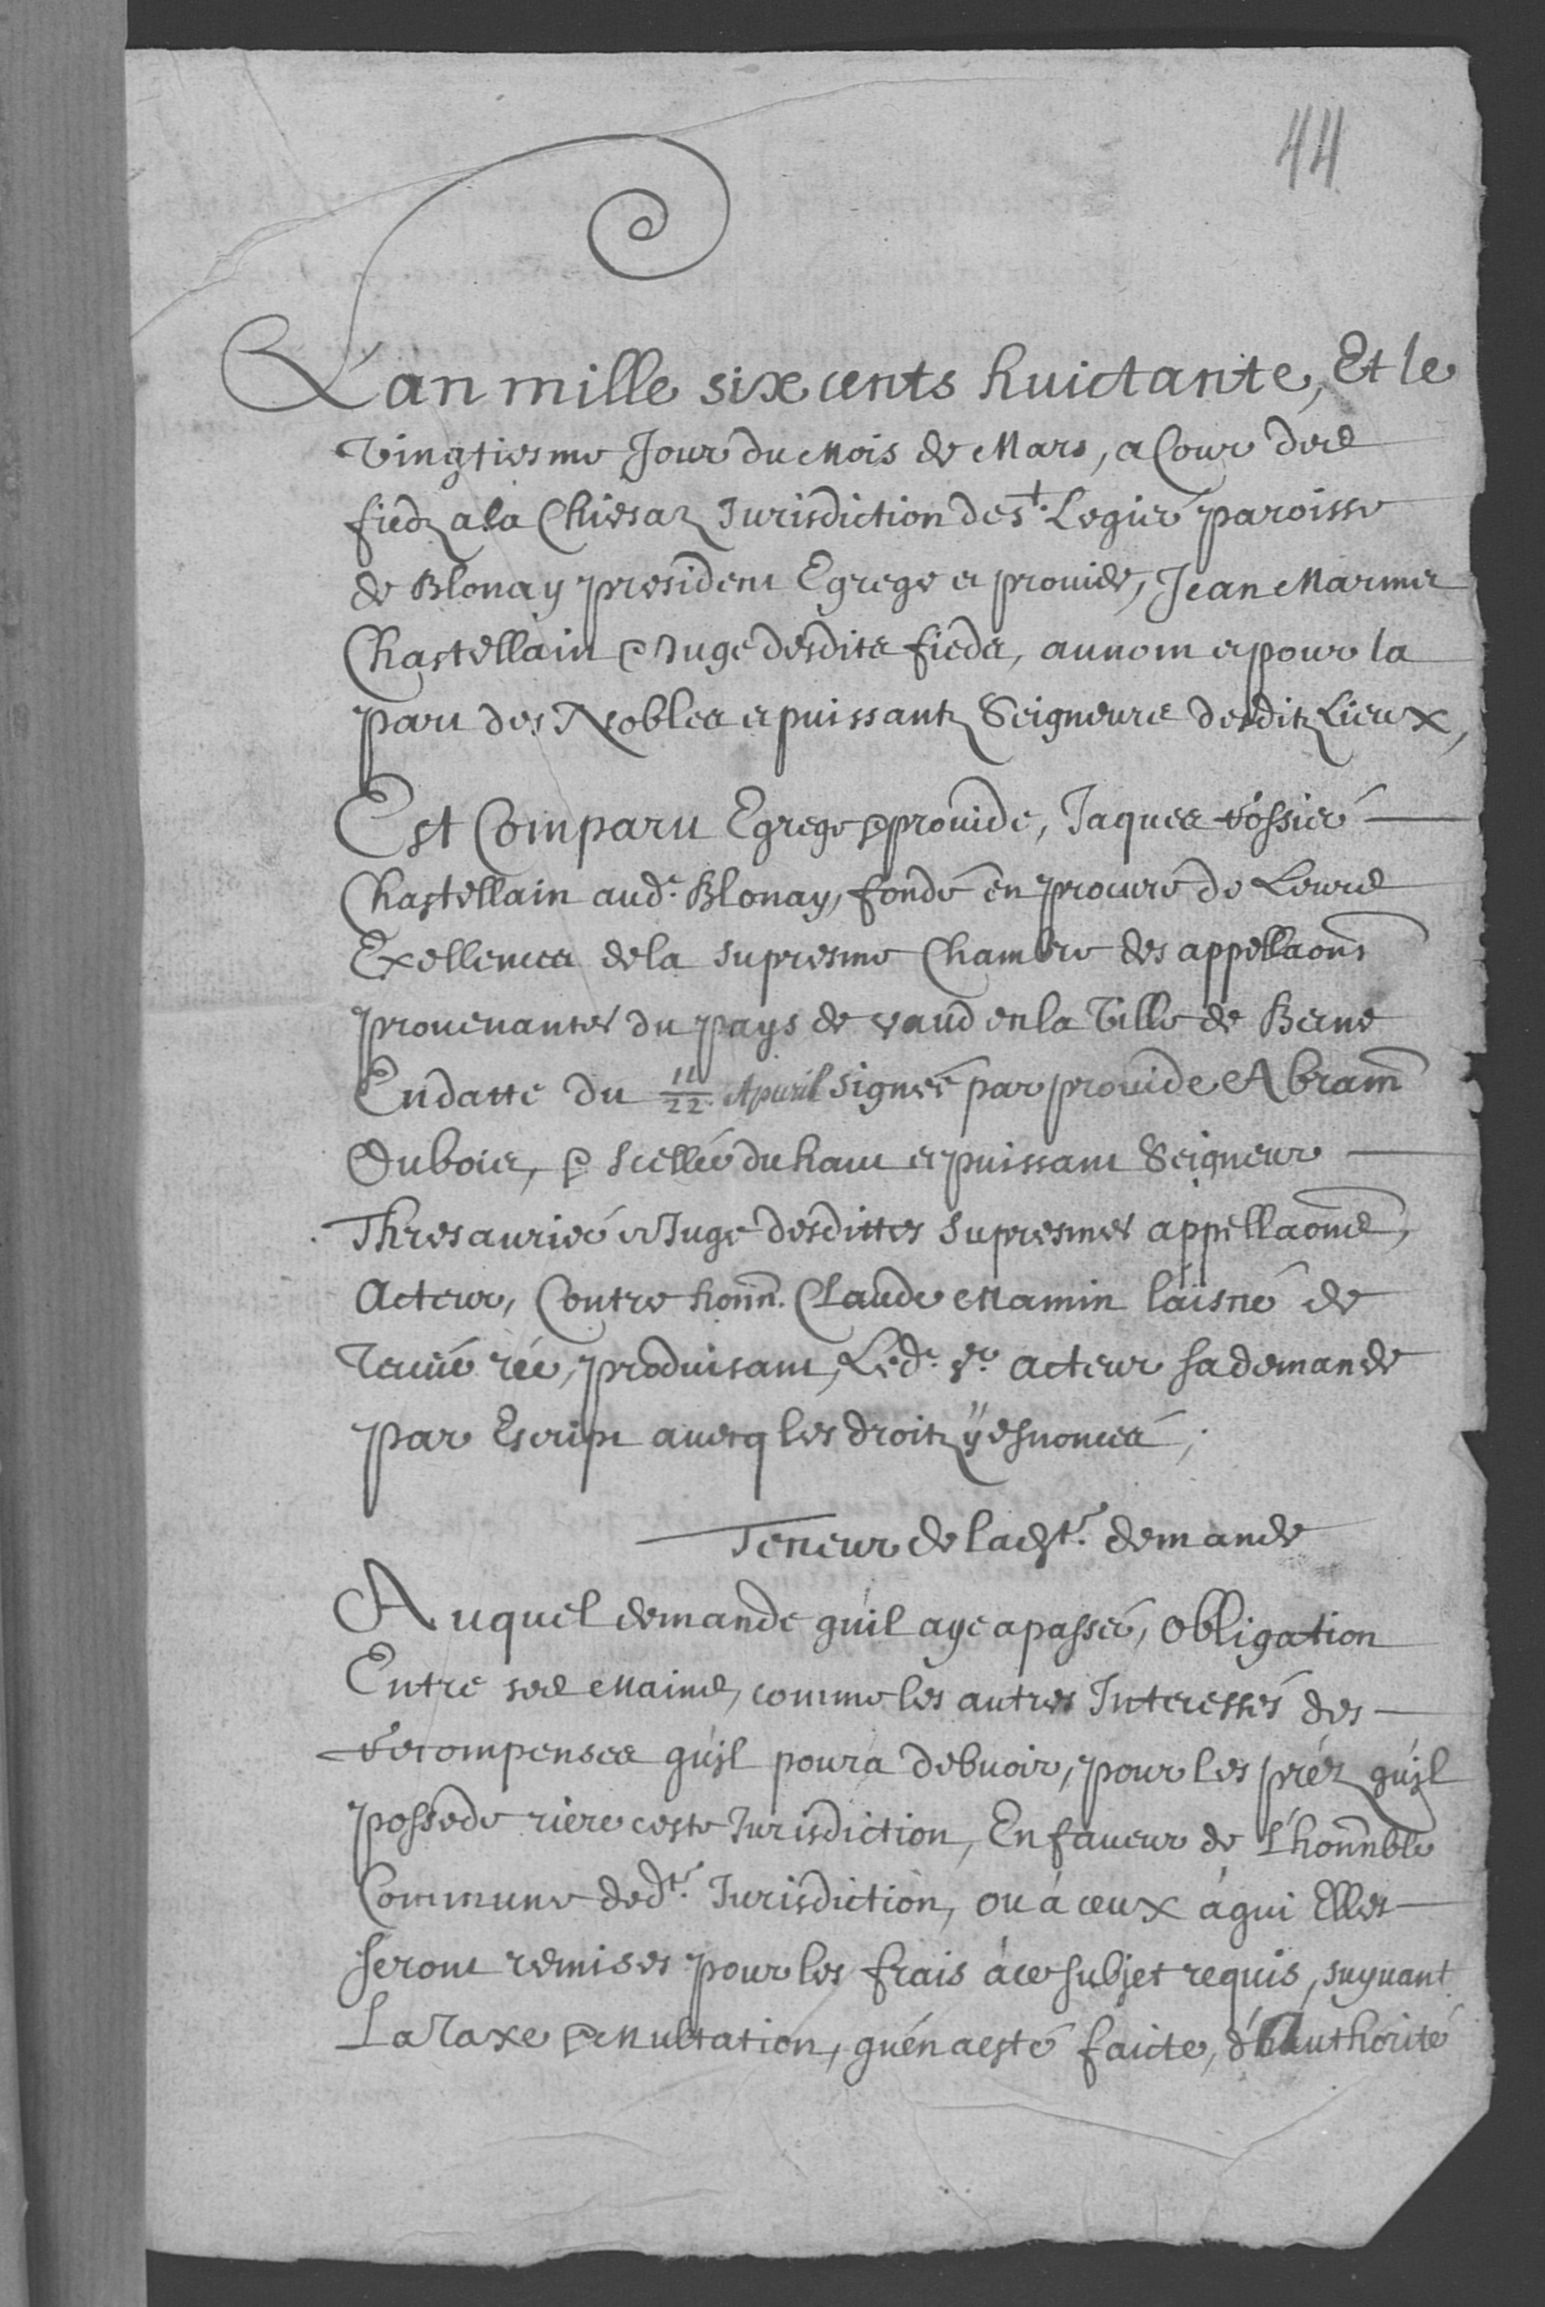 44
L'an mille six cents huictante, Et le
vingtiesme Jour du Mois de Mars, a Cour des
fiedz a la Chiesaz Jurisdiction de St. Legier paroisse
de Blonay president Egrege et prouide, Jean Marmet
Chastellain et Juge desdits fieds, au nom et pour la
part des Nobles et puissantz Seigneurs desditz Lieux,
Est Comparu Egrege et prouide, Jaques
Chastellain aud.t Blonay, fondé en procure de Leurs
Exellences de la supresme Chambre des appellaons
prouenantes du pays de vaud en la Ville de Berne
En datte du 11/22 Apuril signée par prouide Abram
Dubois, et scellée du haut et puissant Seigneur
Thresaurier et Juge desdittes supresmes appellaons,
Acteur, Contre honn. Claude Mamin laisné de
rée, produisant, Led.t Sr. acteur sa demande
par Escript auecq les droitz ÿ esnoncés,
Teneur de lad.te demande
Auquel demande qu'il aye a passer, obligation
Entre ses Mains, comme les autres Interessés des
recompenses qu'il poura debuoir, pour les préz qu'il
possede riere ceste Jurisdiction, En faueur de L'honnble
Commune de d.te Jurisdiction, ou à ceux à qui Elles
seront remises pour les frais à ce subjet requis, suyuant
La Taxe et Multation, qu'en a esté faicte, d'Authorité